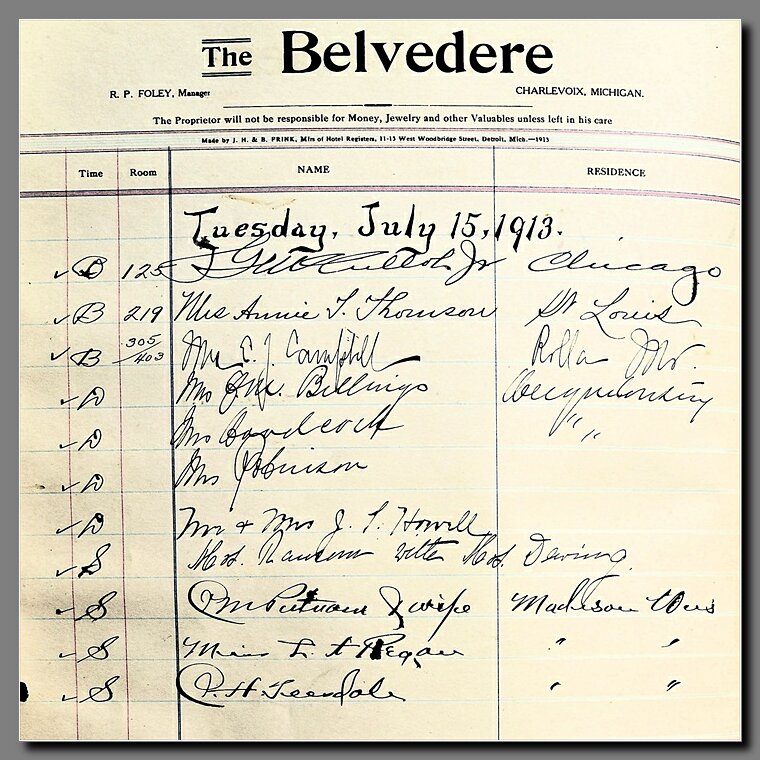 The Belvedere
R. P. FOLEY, Manager CHARLEVOIX, MICHIGAN.
The Proprietor will not be responsible for Money, Jewelry and other Valuables unless left in his care
Made by J. H. & B. PRINK, Mfrs of Hotel Registers, 11-15 West Woodbridge Street, Detroit, Mich.—1913
Time Room NAME RESIDENCE
Tuesday, July 15, 1913.
✓ B 125 Jr Chicago
✓ B 219 Mrs Annie T. Thomson St Louis
✓ B 305/403 C. J. Campbell Rolla Mo.
✓ D Mrs Billings
✓ D Mrs " "
✓ D Mrs Robinson
✓ D Mr & Mrs J. T. Howell
✓ S Mrs. Ransom with Mrs. Dering.
✓ S Putnam & wife Madison Wis
✓ S Miss Regan " "
✓ S Teesdale " "